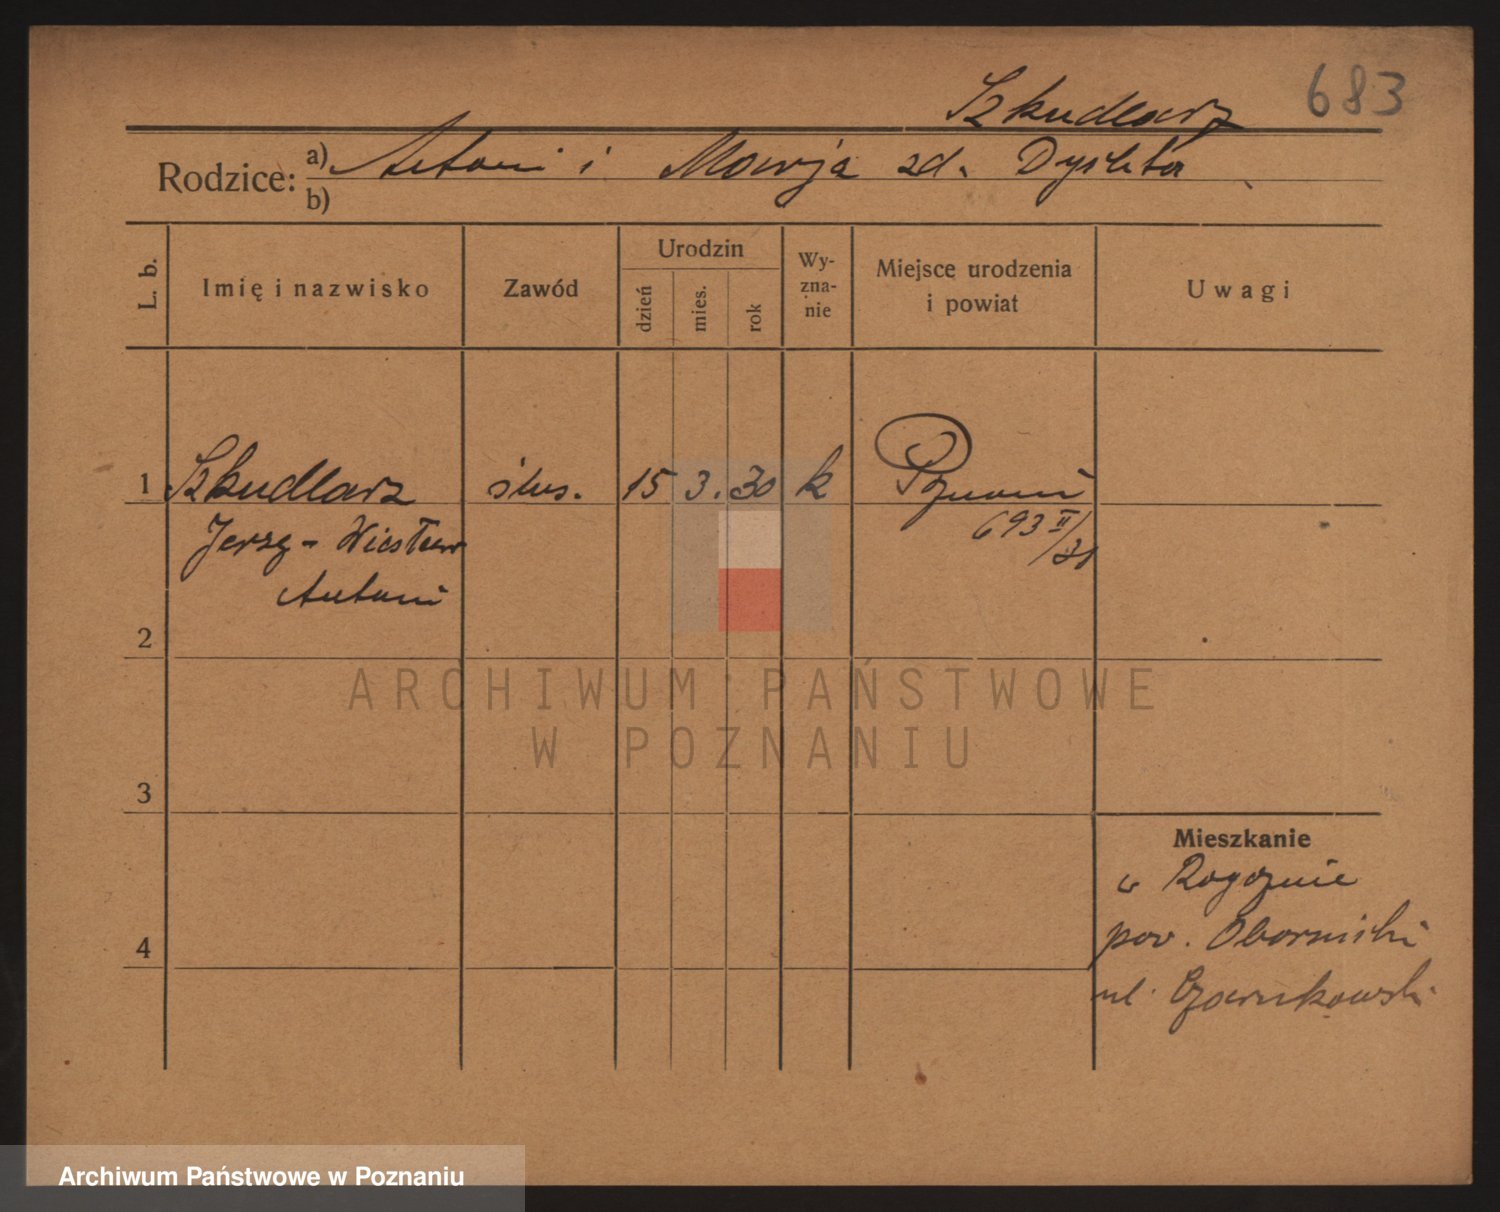 683
Szkudlarz
Rodzice: a) Antoni i Maryja zd. Dyrkta
b)
L. b. Imię i nazwisko Zawód Urodzin dzień mies. rok Wy-zna-nie Miejsce urodzenia i powiat Uwagi
1 Szkudlarz ślus. 15 3. 30 k Poznań
Jerzy - Wiesław 693 II/31
Antoni
2
ARCHIWUM PAŃSTWOWE
W POZNANIU
3
Mieszkanie
w Rogoznie
pow. Obornicki
4
ul. Czarnkowski
Archiwum Państwowe w Poznaniu